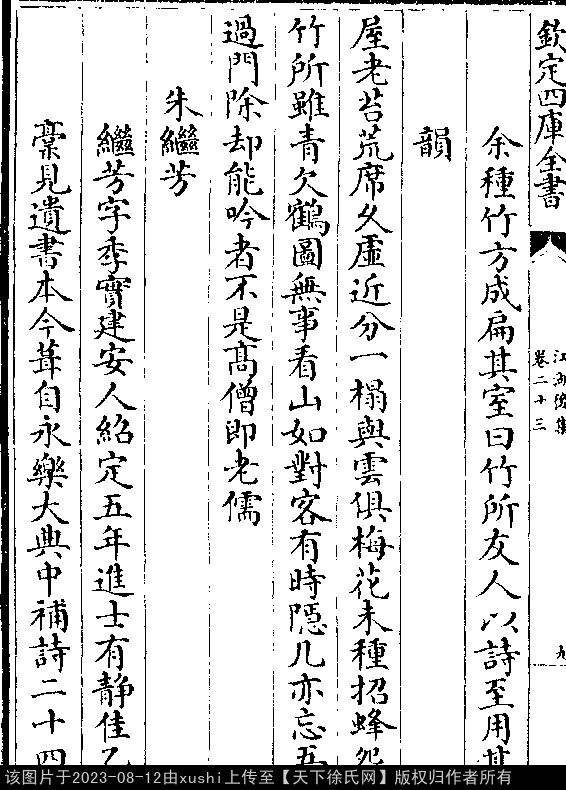 欽定四庫全書
江湖後集
卷二十三
九
余種竹方成扁其室曰竹所友人以詩至用其
韻
屋老苔荒席久虛近分一榻與雲俱梅花未種招蜂怨
竹所雖青欠鶴圖無事看山如對客有時隠几亦忘吾
過門除却能吟者不是髙僧即老儒
朱繼芳
繼芳字季實建安人紹定五年進士有静佳乙
稾見遺書本今葺自永樂大典中補詩二十四
该图片于2023-08-12由xushi上传至【天下徐氏网】版权归作者所有